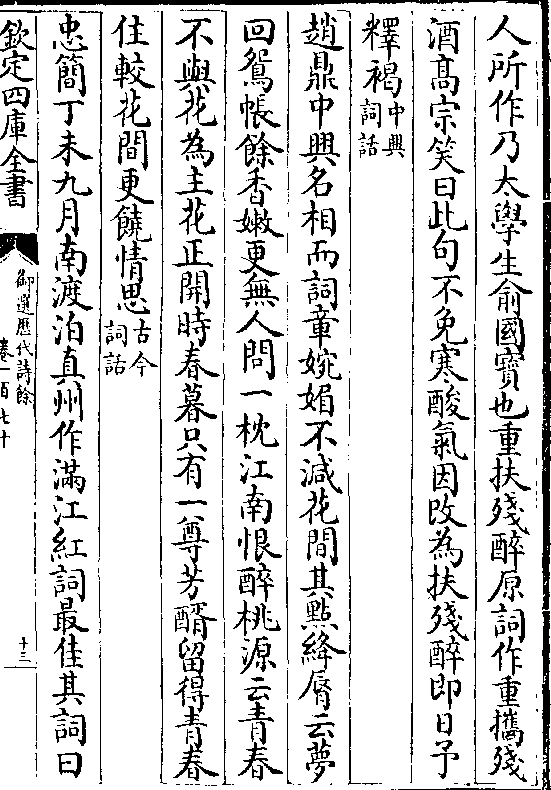 人所作乃太學生俞國寶也重扶殘醉原詞作重攜殘
酒髙宗笑曰此句不免寒酸氣因改為扶殘醉即日予
釋褐中興詞話
趙鼎中興名相而詞章婉媚不減花間其點絳脣云夢
回鴛帳餘香嫩更無人問一枕江南恨醉桃源云青春
不與花為主花正開時春暮只有一尊芳醑留得青春
住較花間更饒情思古今詞話
忠簡丁未九月南渡泊真州作滿江紅詞最佳其詞曰
欽定四庫全書
御選歷代詩餘
卷一百十七
十三